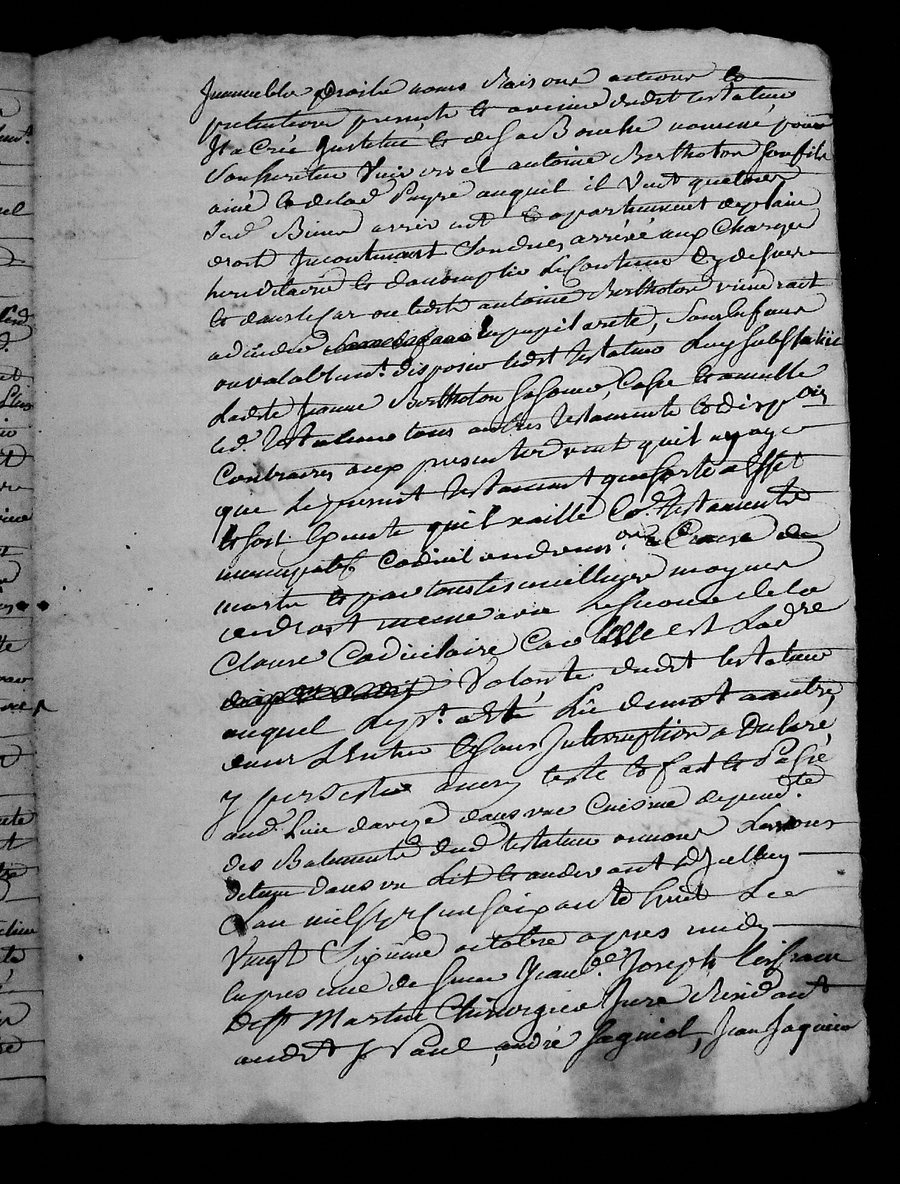 Immeuble droits noms Raisons actions et
pretentions presents et avenir dudit testateur
Il a Cree Institué et de Sa Bouche nommé pour
Son heritier Univercel antoine Berthoton Son fils
ainé et de lad. Payre auquel il veut que tous
Sesd. Biens arrivent et apartiennent de plain
droit Incontinant Son deces arrivé aux Charges
hereditaires et d'accomplir Le Contenu Cy dessus
et dans le Cas ou ledit antoine Berthoton viendrait
a deceder en pupilarité, Sans Enfans
ou valablemt. disposer ledit testateur Luy Substitüe
Ladite Jeanne Berthoton Sa Soeur, Casse et annulle
led. testateur tous autres testaments et dispons
Contraires aux presentes veut qu'il n'y aye
que Le present testament que Sorte a Effet
et Sort Et ou il ne vaille Co. testaments
nuncupatif Codicil endonnaon a Cause de
mort et par tous les meilleurs moyens
en droit meme avec Le Secours de la
Clause Codicilaire Car telle est La dre
Volonté dudit testateur
auquel Le pnt. a eté Lû de mot a autre,
dans L'Entier Et Sans Interruption a Declaré
y persister aussy testé et fait et Passé
aud. Lieu dans une Cuisine dependte
des Batiments dud. testateur
detenu dans un Lit
L'an mil Sept Cens Soixante huit Le
Vingt Sixieme octobre apres midy
En presence de Sieur Jean Joseph
Martin Chirurgien Juré Residant
audit St Paul, andré Sagniol, Jean Jaques